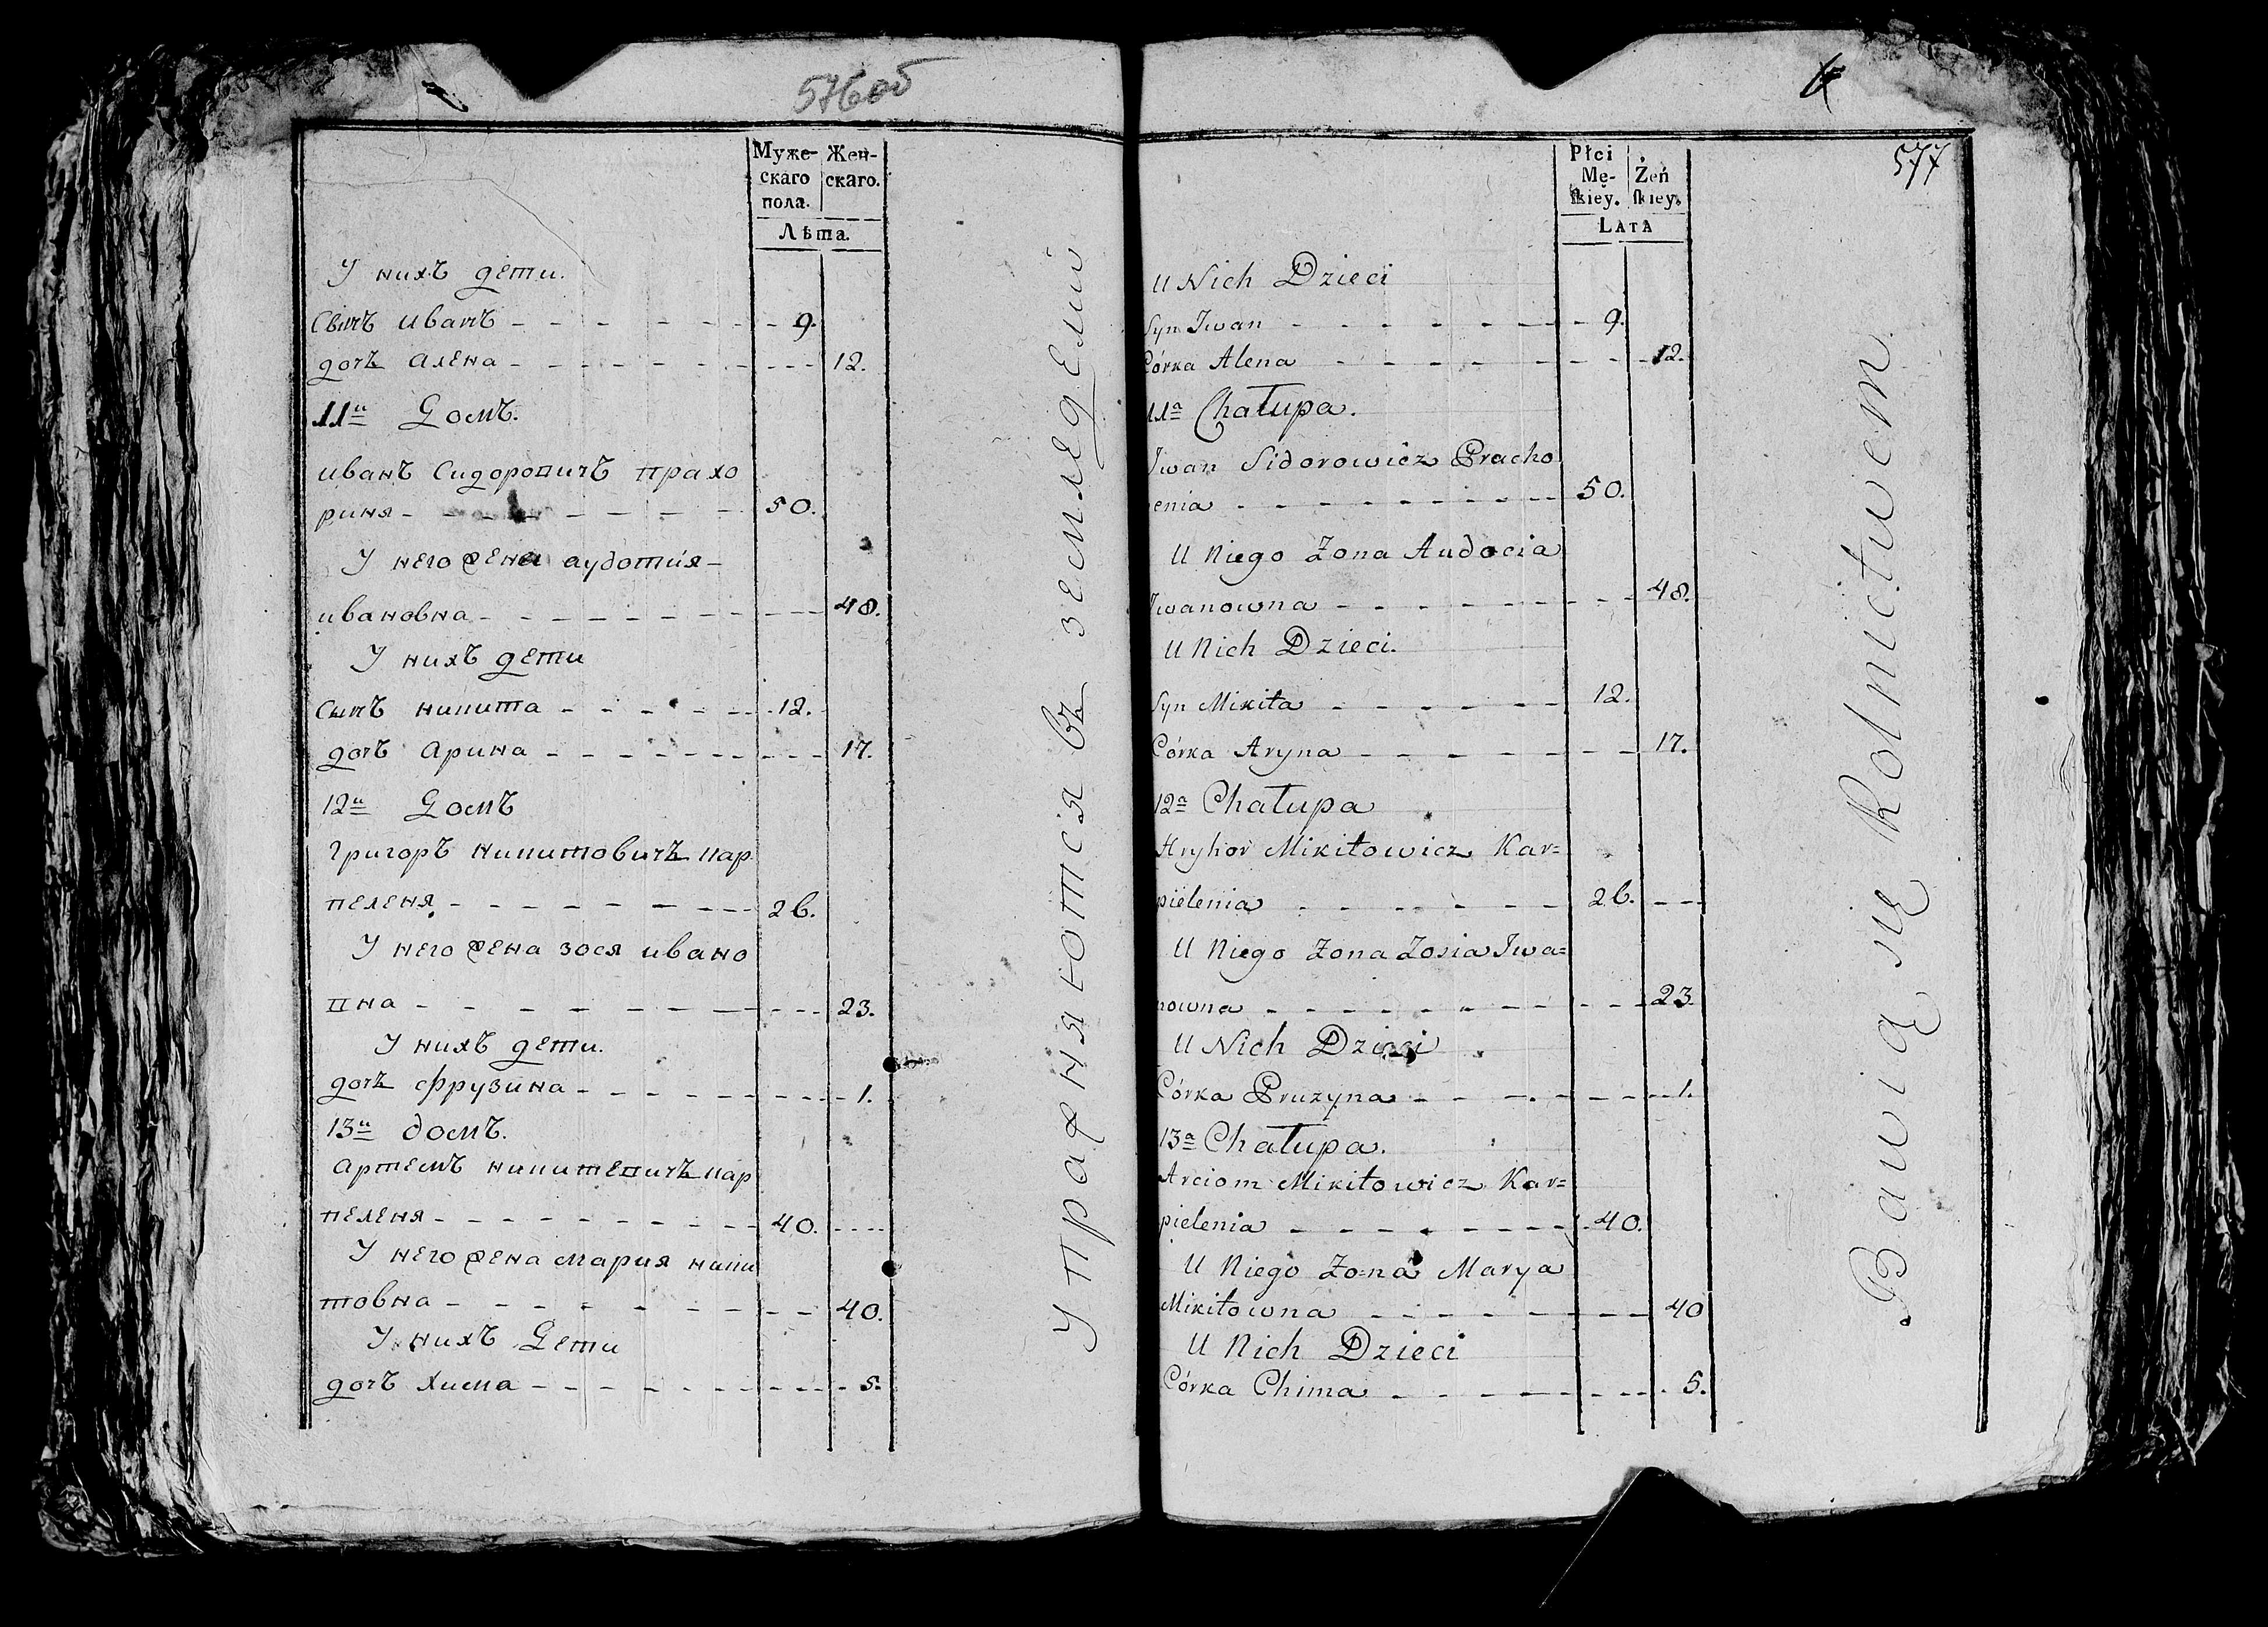 576об
Муже- Жен-
скаго скаго.
пола.
Лѣта.
У нихъ дети.
Свінъ иванъ 9.
дочь алена 12.
11й Домъ.
иванъ Сидоровичъ прахо
риня 50.
У него жена аудотия
ивановна 48.
У нихъ дети
Сынъ никита 12.
дочъ арина 17.
12й Домъ
григоръ никитовичь кар
пеленя 26.
У него жена зося ивано
вна 23.
У нихъ дети.
дочь фрузина 1.
13й домъ.
артемъ никитевичь кар
пеленя 40.
У него жена мария наки
товна 40.
У нихъ Дети
дочъ хима 5.
упражняются въ земледелии
577
Płci Żeń
Mę- skiey.
skiey.
LATA
U Nich Dzieci
Syn Jwan 9.
Córka Alena 12.
11a Chałupa.
Jwan Sidorowicz Pracho
enia 50.
U Niego Żona Audocia
Jwanowna 48.
U Nich Dzieci.
Syn Mikita 12.
Córka Aryna 17.
12a Chałupa
Hryhor Mikitowicz Kar=
pielenia 26.
U Niego Żona Zosia Jwa=
nowna 23
U Nich Dzieci
Córka Pruzyna 1.
13a Chałupa.
Arciom Mikitowicz Kar=
pielenia 40.
U Niego Żona Marya
Mikitowna 40
U Nich Dzieci
Córka Chima 5.
Bawią się Rolnictwem